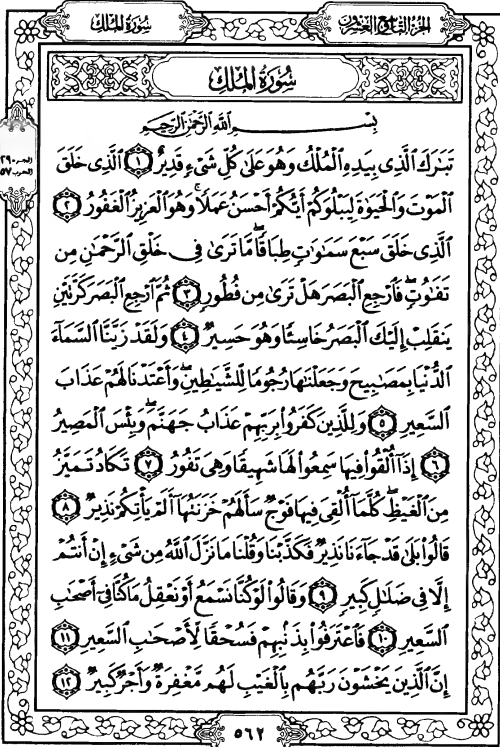 الجزء التاسع والعشرون
سورة الملك
سُورَةُ المُلْكِ
بِسْمِ اللَّهِ الرَّحْمَنِ الرَّحِيمِ
الجزء ٢٩
الحزب ٥٧
تَبَارَكَ الَّذِي بِيَدِهِ الْمُلْكُ وَهُوَ عَلَى كُلِّ شَيْءٍ قَدِيرٌ ١ الَّذِي خَلَقَ
الْمَوْتَ وَالْحَيَاةَ لِيَبْلُوَكُمْ أَيُّكُمْ أَحْسَنُ عَمَلًا ۚ وَهُوَ الْعَزِيزُ الْغَفُورُ ٢
الَّذِي خَلَقَ سَبْعَ سَمَاوَاتٍ طِبَاقًا ۖ مَا تَرَى فِي خَلْقِ الرَّحْمَٰنِ مِن
تَفَاوُتٍ ۖ فَارْجِعِ الْبَصَرَ هَلْ تَرَى مِن فُطُورٍ ٣ ثُمَّ ارْجِعِ الْبَصَرَ كَرَّتَيْنِ
يَنقَلِبْ إِلَيْكَ الْبَصَرُ خَاسِئًا وَهُوَ حَسِيرٌ ٤ وَلَقَدْ زَيَّنَّا السَّمَاءَ
الدُّنْيَا بِمَصَابِيحَ وَجَعَلْنَاهَا رُجُومًا لِّلشَّيَاطِينِ ۖ وَأَعْتَدْنَا لَهُمْ عَذَابَ
السَّعِيرِ ٥ وَلِلَّذِينَ كَفَرُوا بِرَبِّهِمْ عَذَابُ جَهَنَّمَ ۖ وَبِئْسَ الْمَصِيرُ
٦ إِذَا أُلْقُوا فِيهَا سَمِعُوا لَهَا شَهِيقًا وَهِيَ تَفُورُ ٧ تَكَادُ تَمَيَّزُ
مِنَ الْغَيْظِ ۖ كُلَّمَا أُلْقِيَ فِيهَا فَوْجٌ سَأَلَهُمْ خَزَنَتُهَا أَلَمْ يَأْتِكُمْ نَذِيرٌ ٨
قَالُوا بَلَى قَدْ جَاءَنَا نَذِيرٌ فَكَذَّبْنَا وَقُلْنَا مَا نَزَّلَ اللَّهُ مِن شَيْءٍ إِنْ أَنتُمْ
إِلَّا فِي ضَلَالٍ كَبِيرٍ ٩ وَقَالُوا لَوْ كُنَّا نَسْمَعُ أَوْ نَعْقِلُ مَا كُنَّا فِي أَصْحَابِ
السَّعِيرِ ١٠ فَاعْتَرَفُوا بِذَنبِهِمْ فَسُحْقًا لِّأَصْحَابِ السَّعِيرِ ١١
إِنَّ الَّذِينَ يَخْشَوْنَ رَبَّهُم بِالْغَيْبِ لَهُم مَّغْفِرَةٌ وَأَجْرٌ كَبِيرٌ ١٢
٥٦٢